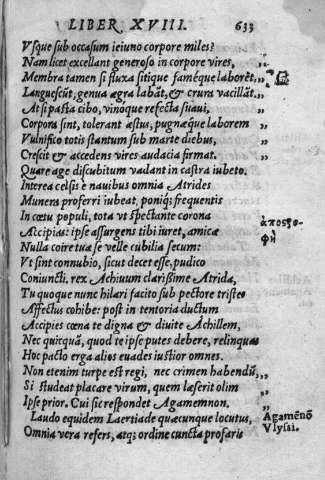 LIBER XVIII. 633
Vsque sub occasum ieiuno corpore miles?
Nam licet excellant generoso in corpore vires,
Membra tamen si fluxa sitique faméque laborẽt,
Languescũt, genua ægra labãt, & crura vacillãt.
At si pasta cibo, vinoque refecta suaui,
Corpora sint, tolerant æstus, pugnæque laborem
Vulnifico totis stantum sub marte diebus,
Crescit & accedens vires audacia firmat.
Quare age discubitum vadant in castra iubeto.
Interea celsis è nauibus omnia Atrides
Munera proferri iubeat, poniq; frequentis
In cœtu populi, tota vt spectante corona
Accipias: ipse assurgens tibi iuret, amicæ
ἀποστρο
Nulla coire tuæ se velle cubilia secum:
φὴ
Vt sint connubio, sicut decet esse, pudico
Coniuncti. rex Achiuum clarissime Atrida,
Tu quoque nunc hilari facito sub pectore tristes
Affectus cohibe: post in tentoria ductum
Accipies cœna te digna & diuite Achillem,
Nec quicquã, quod te ipse putes debere, relinquas
Hoc pacto erga alios euades iustior omnes.
Non etenim turpe est regi, nec crimen habendũ,
Si studeat placare virum, quem læserit olim
Ipse prior. Cui sic respondet Agamemnon.
Laudo equidem Laertiade quæcunque locutus,
Agamẽnõ
Omnia vera refers, atq; ordine cuncta profaris
Vlyssi.